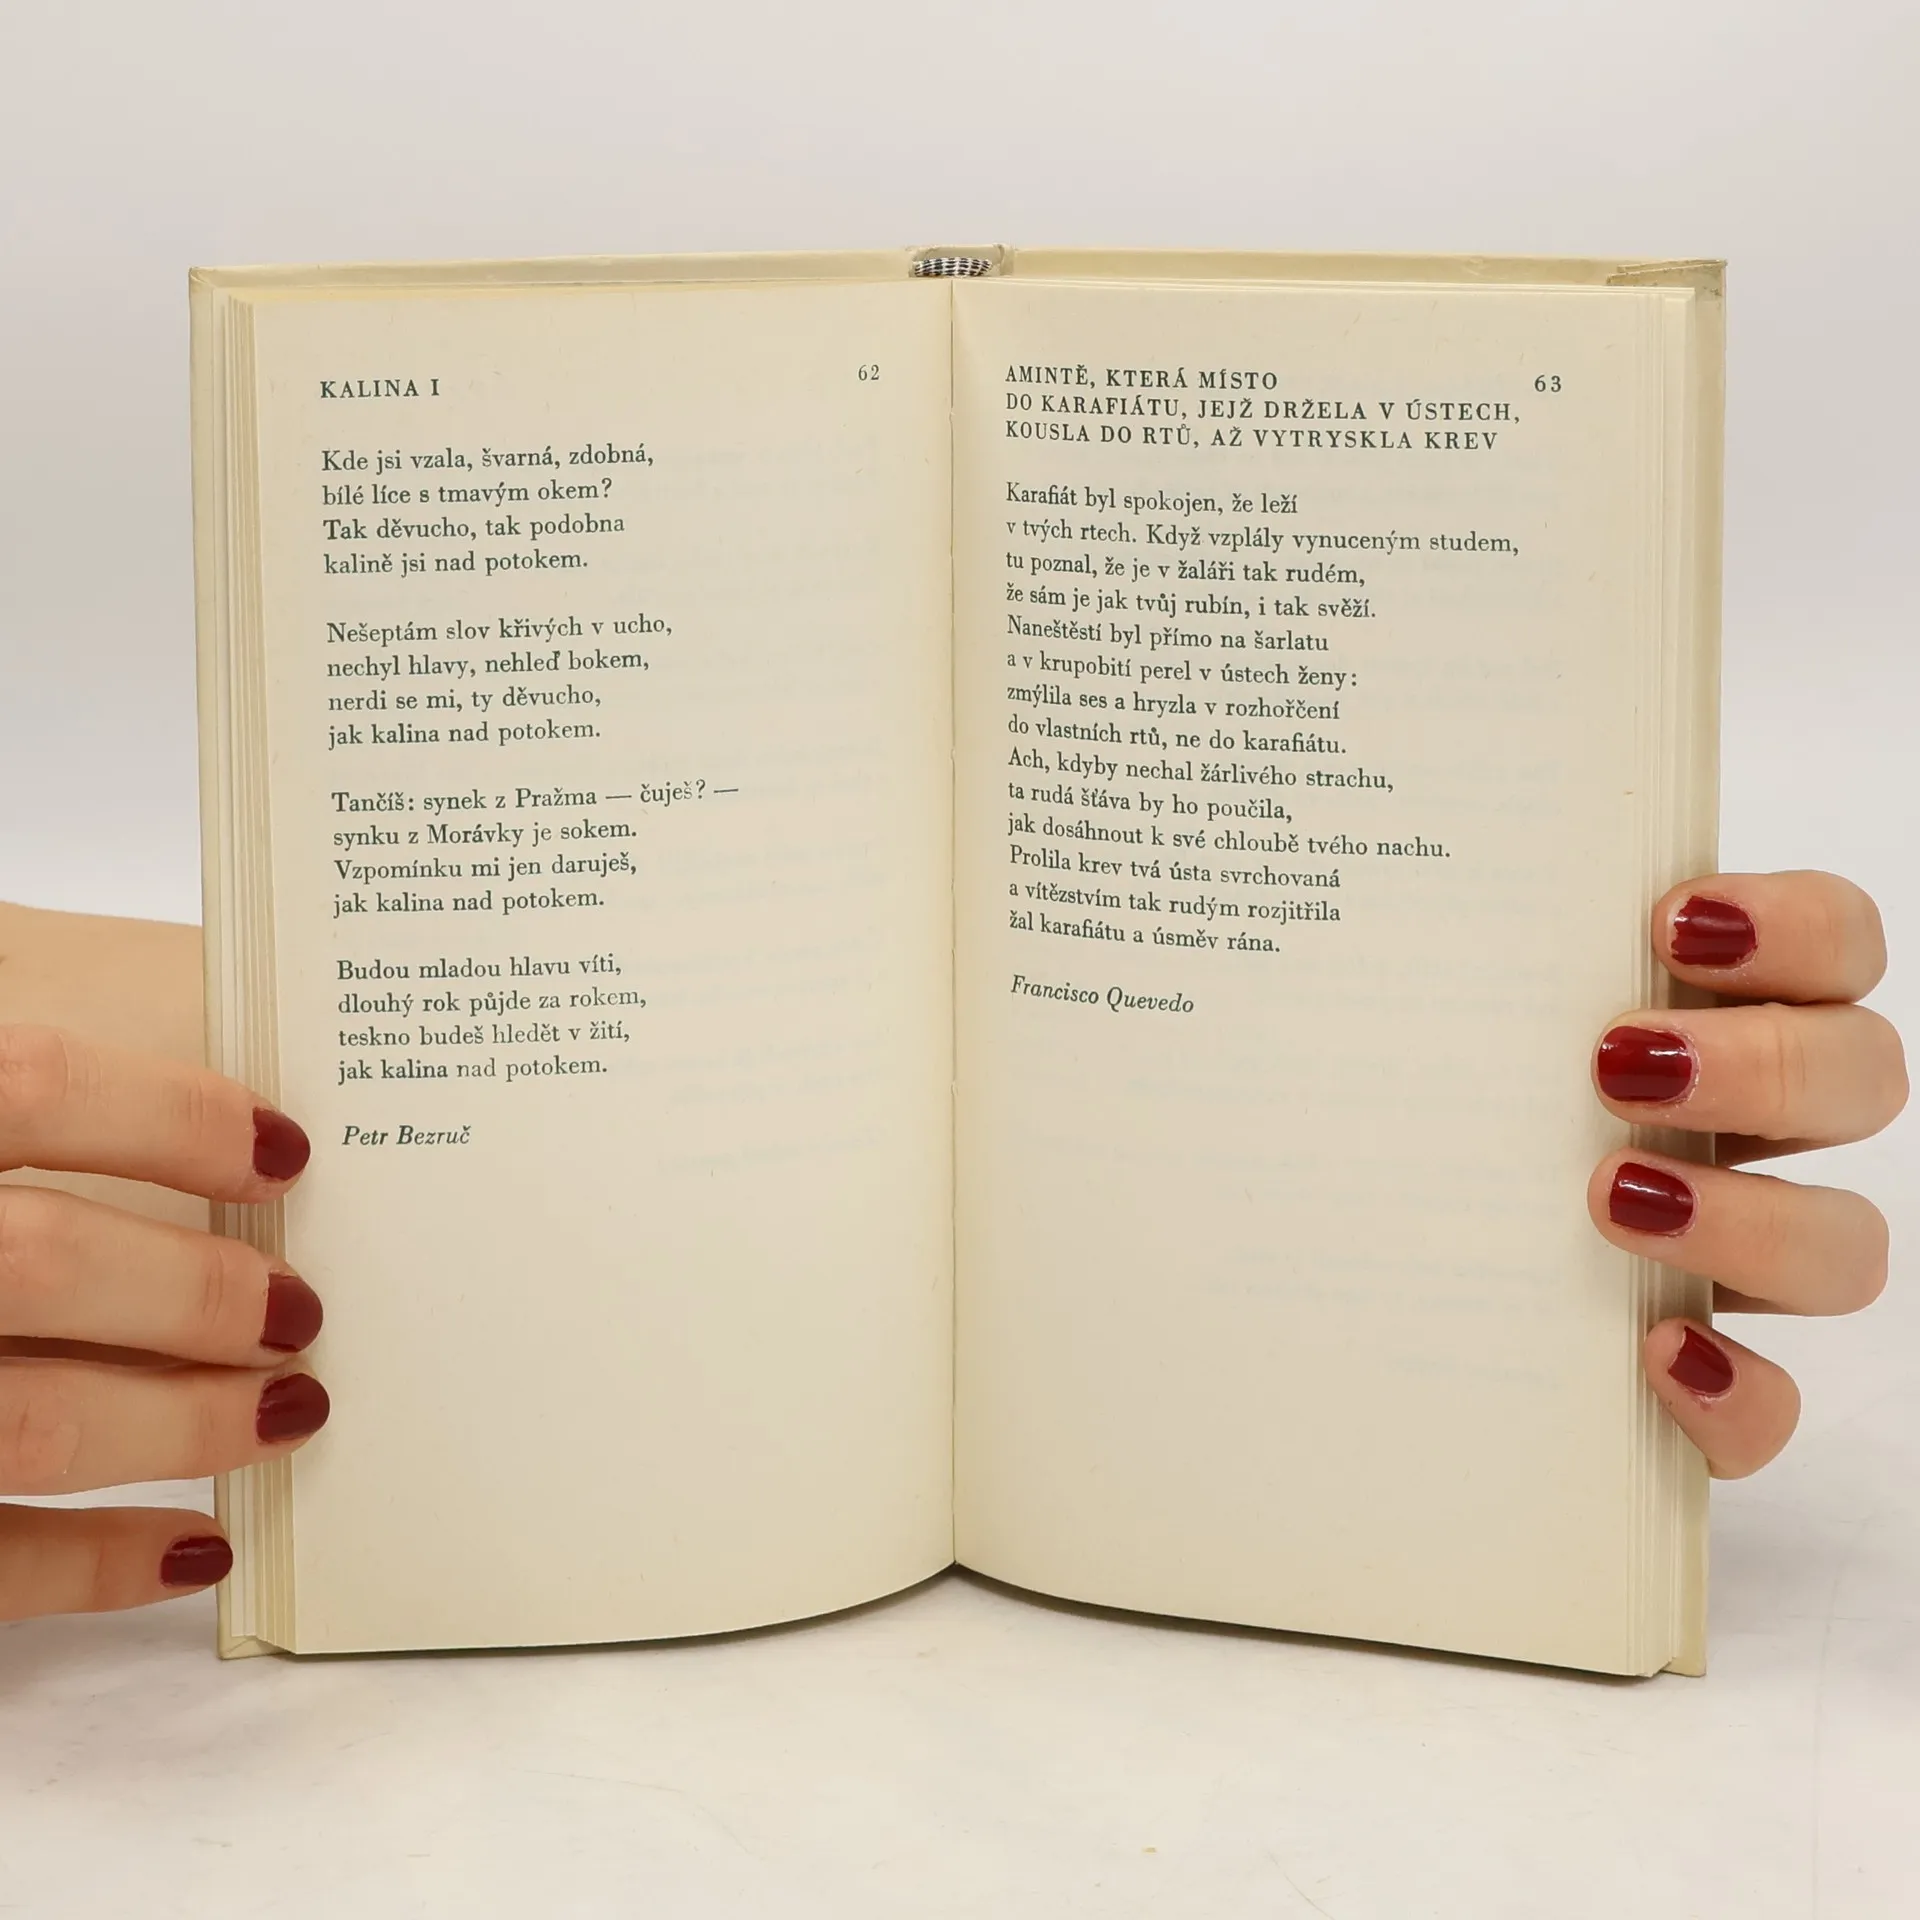 KALINA I
62
Kde jsi vzala, švarná, zdobná,
bílé líce s tmavým okem?
Tak děvucho, tak podobna
kalině jsi nad potokem.
Nešeptám slov křivých v ucho,
nechyl hlavy, nehleď bokem,
nerdi se mi, ty děvucho,
jak kalina nad potokem.
Tančíš: synek z Pražma — čuješ? —
synku z Morávky je sokem.
Vzpomínku mi jen daruješ,
jak kalina nad potokem.
Budou mladou hlavu víti,
dlouhý rok půjde za rokem,
teskno budeš hledět v žití,
jak kalina nad potokem.
Petr Bezruč
AMINTĚ, KTERÁ MÍSTO
63
DO KARAFIÁTU, JEJŽ DRŽELA V ÚSTECH,
KOUSLA DO RTŮ, AŽ VYTRYSKLA KREV
Karafiát byl spokojen, že leží
v tvých rtech. Když vzplály vynuceným studem,
tu poznal, že je v žaláři tak rudém,
že sám je jak tvůj rubín, i tak svěží.
Naneštěstí byl přímo na šarlatu
a v krupobití perel v ústech ženy:
zmýlila ses a hryzla v rozhořčení
do vlastních rtů, ne do karafiátu.
Ach, kdyby nechal žárlivého strachu,
ta rudá šťáva by ho poučila,
jak dosáhnout k své chloubě tvého nachu.
Prolila krev tvá ústa svrchovaná
a vítězstvím tak rudým rozjitřila
žal karafiátu a úsměv rána.
Francisco Quevedo